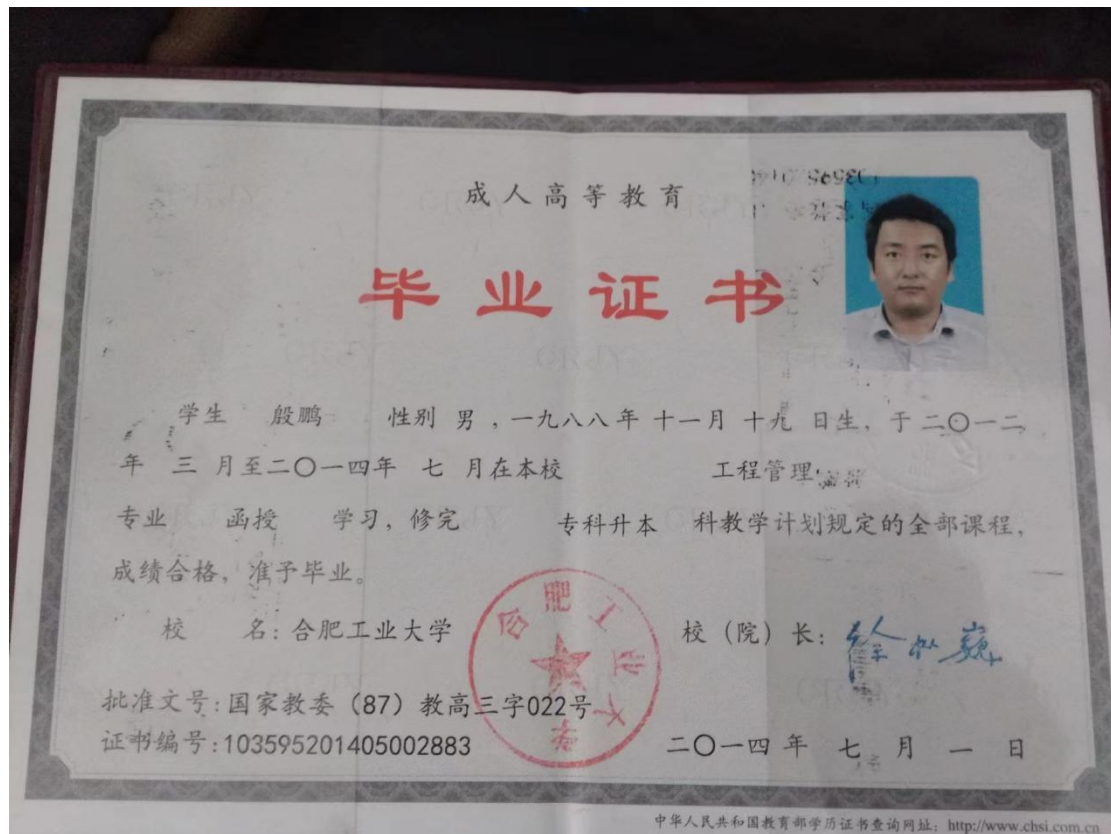 成人高等教育
毕业证书
学生 殷鹏 性别 男 ，一九八八年 十一月 十九 日生，于二〇一二
年 三 月至二〇一四年 七 月在本校 工程管理
专业 函授 学习，修完 专科升本 科教学计划规定的全部课程，
成绩合格，准予毕业。
校 名：合肥工业大学
校（院）长：
合肥工业大学
批准文号：国家教委（87）教高三字022号
证书编号：103595201405002883
二〇一四年 七 月 一 日
中华人民共和国教育部学历证书查询网址：http://www.chsi.com.cn